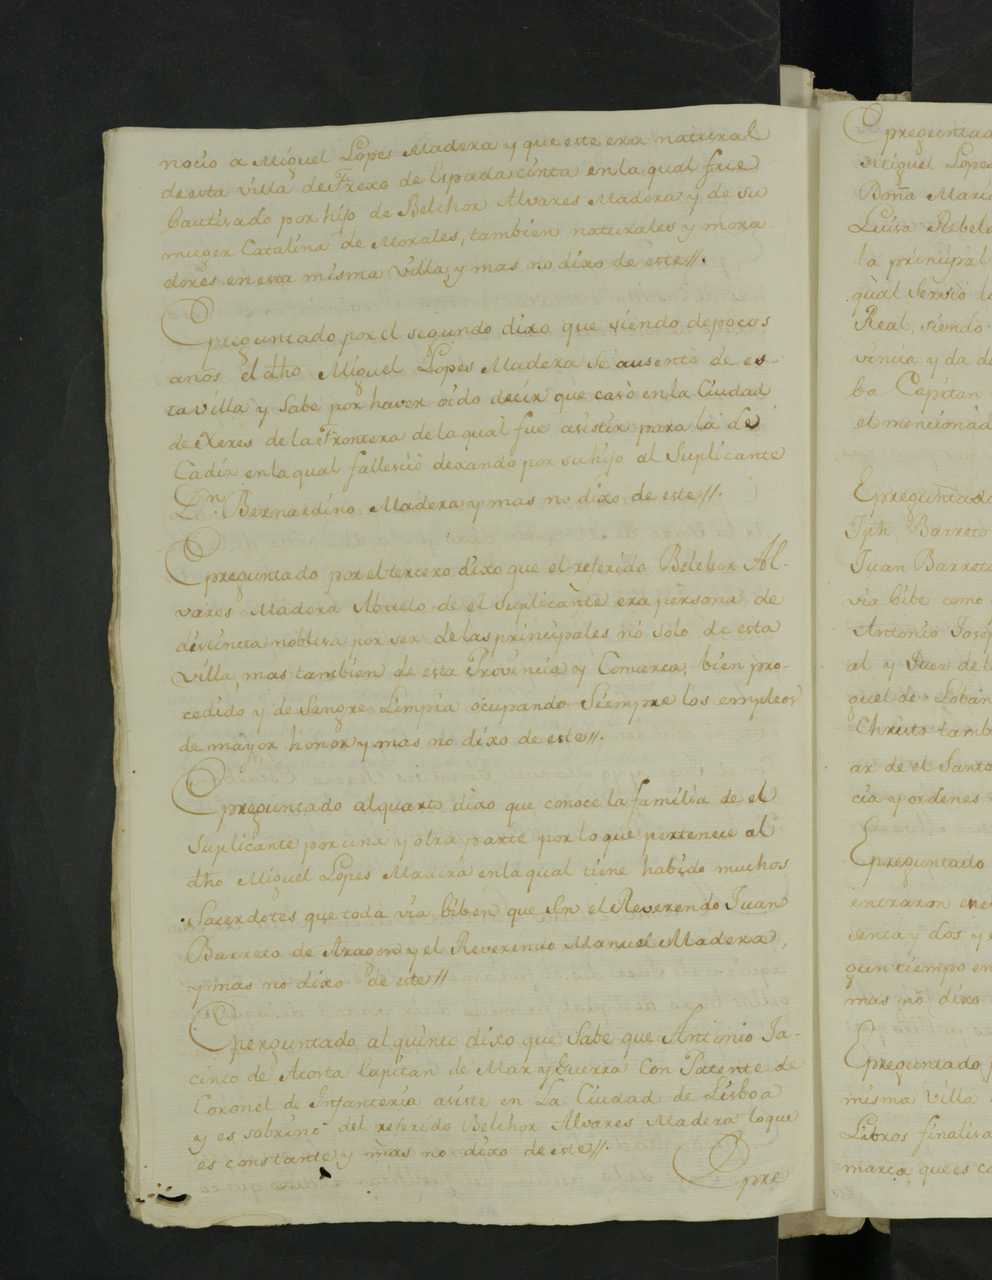 nocio a Miguel Lopes Madera y que este era natural
de esta villa de Frexo de Espada cinta en la qual fue
Bautisado por hijo de Belchor Alvares Madera y de su
muger Catalina de Morales, tambien naturales y mora
dores en esta misma Villa, y mas no dixo de este//.
Epreguntado por el segundo dixo que siendo de pocos
años el dho Miguel Lopes Madera se ausentò de es-
ta villa y sabe por haver oido decir que casò en la Ciudad
de Xeres de la Frontera de la qual fue asistir para la de
Cadix en la qual fallesciò dexando por su hijo al Suplicante
Dn. Bernardino Madera, y mas no dixo de este//.
Epreguntado por el tercero dixo que el referido Belchor Al-
vares Madera Abuelo de el Suplicante era persona de
distincta noblesa por ser de las principales no solo de esta
villa, mas tambien de esta Provincia y Comarca, bien pro-
cedido y de Sangre Limpia ocupando Siempre los empleos
de mayor honor y mas no dixo de este//.
Epreguntado al quarto dixo que conoce la familia de el
Suplicante por una y otra parte por lo que pertenece al
dho Miguel Lopes Madera en la qual tiene habido muchos
Sacerdotes que toda via biben que son el Reverendo Juan
Barreto de Aragon y el Reverendo Manuel Madera,
y mas no dixo de este//
Eperguntado al quinto dixo que Sabe que Antonio Ja-
cinto de Acosta Capitan de Mar y Guerra Con Patente de
Coronel de Infanteria asiste en La Ciudad de Lisboa
y es sobrino del referido Belchor Alvares Madera lo que
es constante y mas no dixo de este//.
Epre
Epreguntad
Miguel Lopes
Doña Maria
Luisa Rebelo
la principal
qual Sirviò
Real, siendo
vincia y da
Capitan
el mencionad
Epreguntado
Jph. Barreto
Juan Barreto
via bibe como
Antonio Josep
al y Juez de
guel de
Christo tamb
ar de el Santo
cia y ordenes
Epreguntado
entraron en
senta y dos y
gun tiempo en
mas no dixo
Epreguntado
misma Villa
Libros finalisa
marca, que es